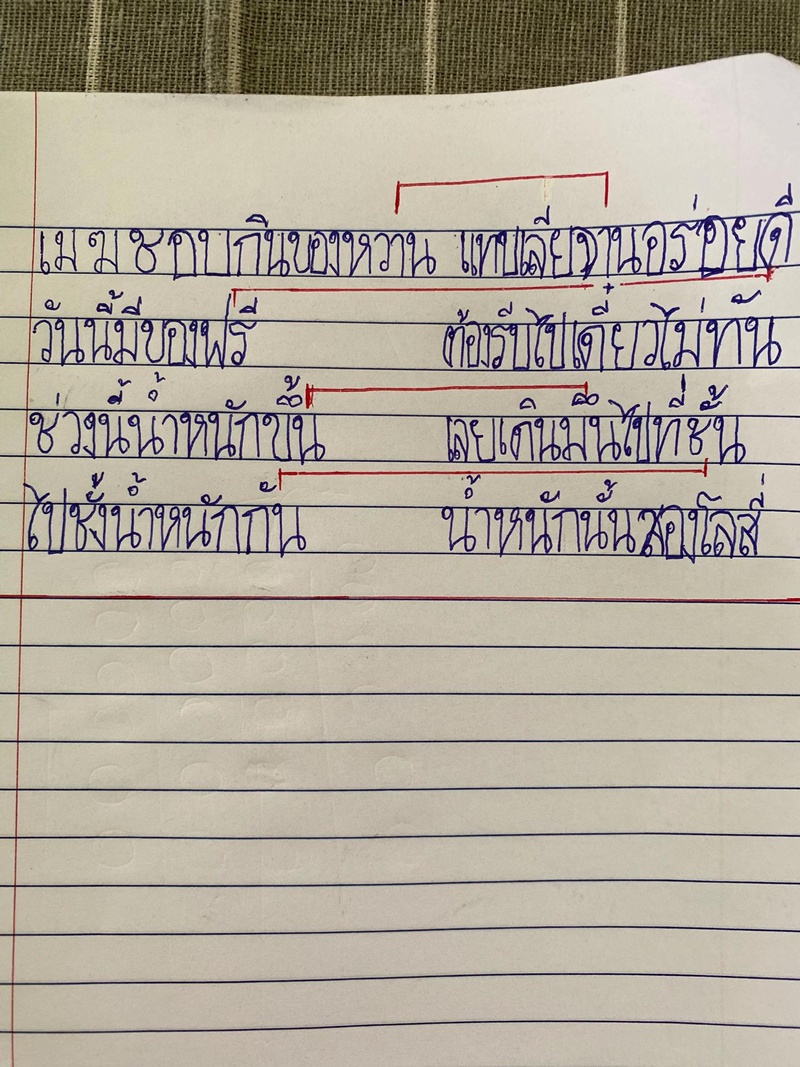 เมฆชอบกินของหวาน แทบเลียจานอร่อยดี
วันนี้มีของฟรี ต้องรีบไปเดี่ยวไม่ทัน
ช่วงนี้น้ำหนักขึ้น เลยเดินมึนไปที่ชั้น
ไปชั้งน้ำหนักกัน น้ำหนักนั้นสองโลสี่